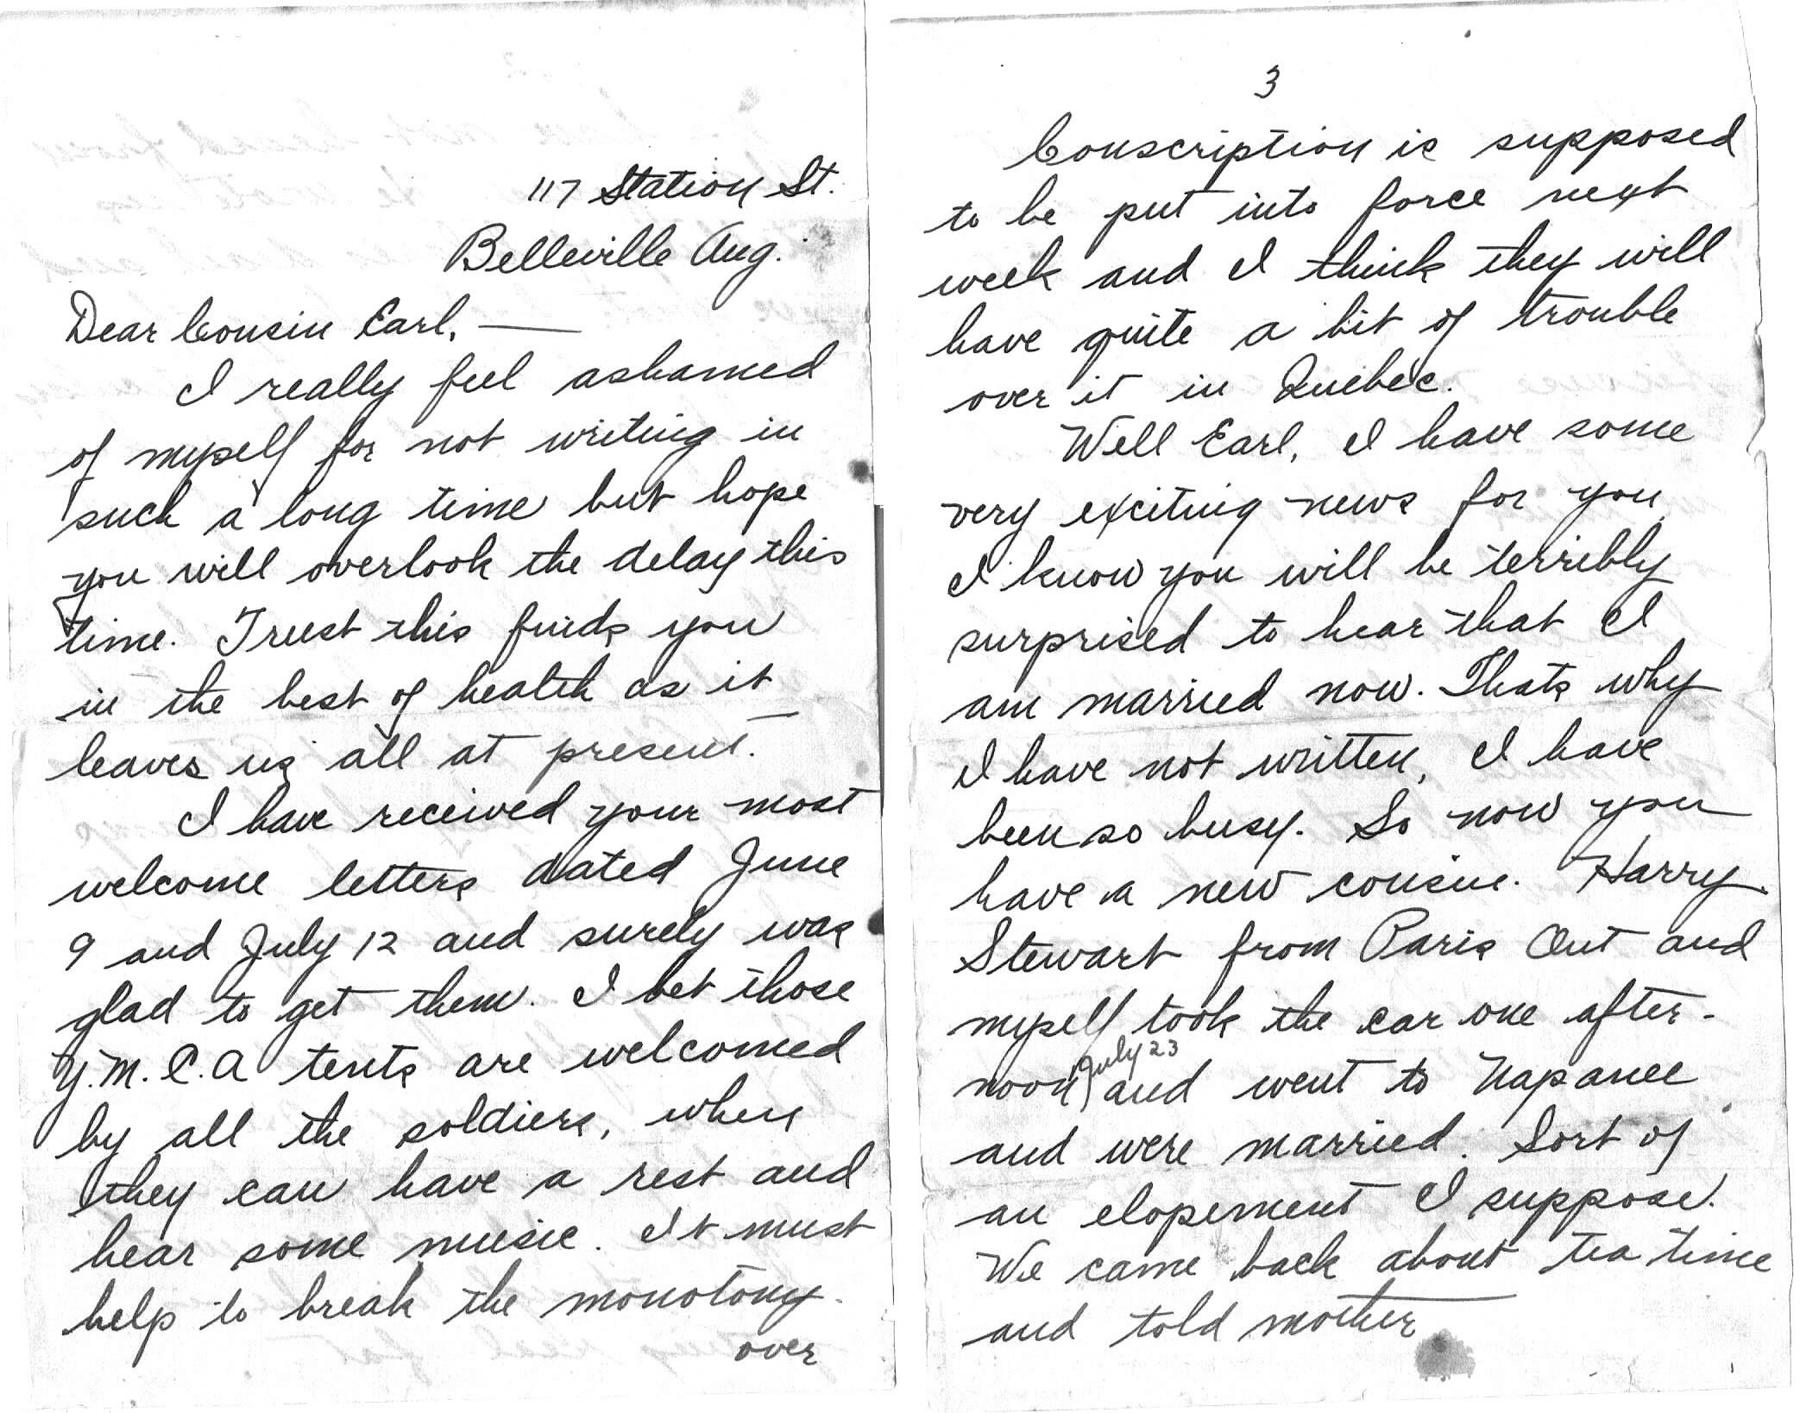 117 Station St.
Belleville Aug.
Dear Cousin Earl, —
I really feel ashamed
of myself for not writing in
such a long time but hope
you will overlook the delay this
time. Trust this finds you
in the best of health as it
leaves us all at present.
I have received your most
welcome letters dated June
9 and July 12 and surely was
glad to get them. I bet those
Y.M.C.A tents are welcomed
by all the soldiers, when
they can have a rest and
hear some music. It must
help to break the monotony.
over
3
Conscription is supposed
to be put into force next
week and I think they will
have quite a bit of trouble
over it in Quebec.
Well Earl, I have some
very exciting news for you
I know you will be terribly
surprised to hear that I
am married now. Thats why
I have not written, I have
been so busy. So now you
have a new cousin. Harry
Stewart from Paris Ont and
myself took the car one after-
noon July 23 and went to Napanee
and were married. Sort of
an elopement I suppose.
We came back about tea time
and told mother